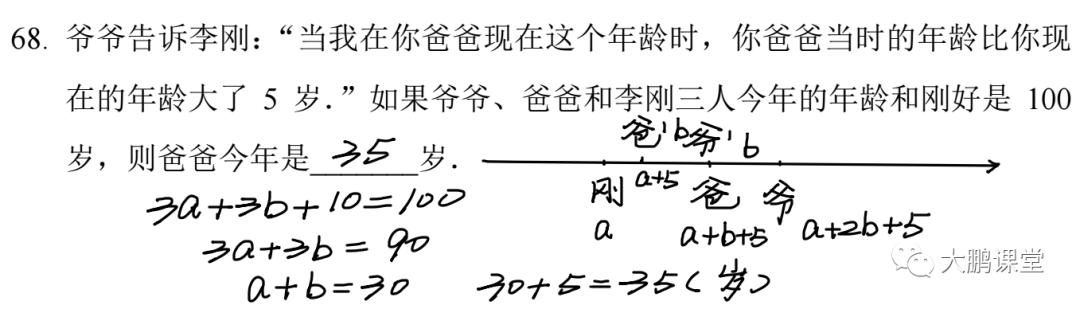 68. 爷爷告诉李刚：“当我在你爸爸现在这个年龄时，你爸爸当时的年龄比你现
在的年龄大了 5 岁.”如果爷爷、爸爸和李刚三人今年的年龄和刚好是 100
岁，则爸爸今年是 35 岁.
爸' b 爷' b
刚 a+5 爸 爷
a a+b+5 a+2b+5
3a+3b+10=100
3a+3b=90
a+b=30 30+5=35(岁)
大鹏课堂